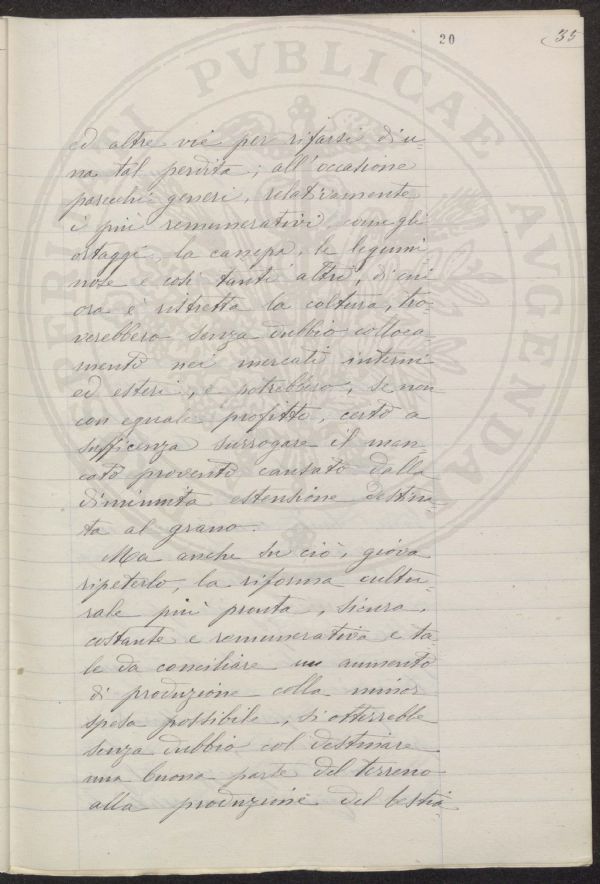 20
35
ed altre vie per rifarsi d'u-
na tal perdita; all'occasione
parecchi generi, relativamente
i più remunerativi come gli
ortaggi, la canepa, le legumi-
nose e così tanti altri, di cui
ora è ristretta la coltura, tro-
verebbero senza dubbio colloca-
mento nei mercati interni
ed esteri, e potrebbero, se non
con eguale profitto, certo a
sufficenza surrogare il man-
cato provento causato dalla
diminuita estensione destina-
ta al grano.
Ma anche su ciò, giova
ripeterlo, la riforma cultu-
rale più pronta, sicura,
costante e remunerativa e ta-
le da conciliare un aumento
di produzione colla minor
spesa possibile, si otterrebbe
senza dubbio col destinare
una buona parte del terreno
alla produzione del bestia
PVBLICAE
AVGENDAE